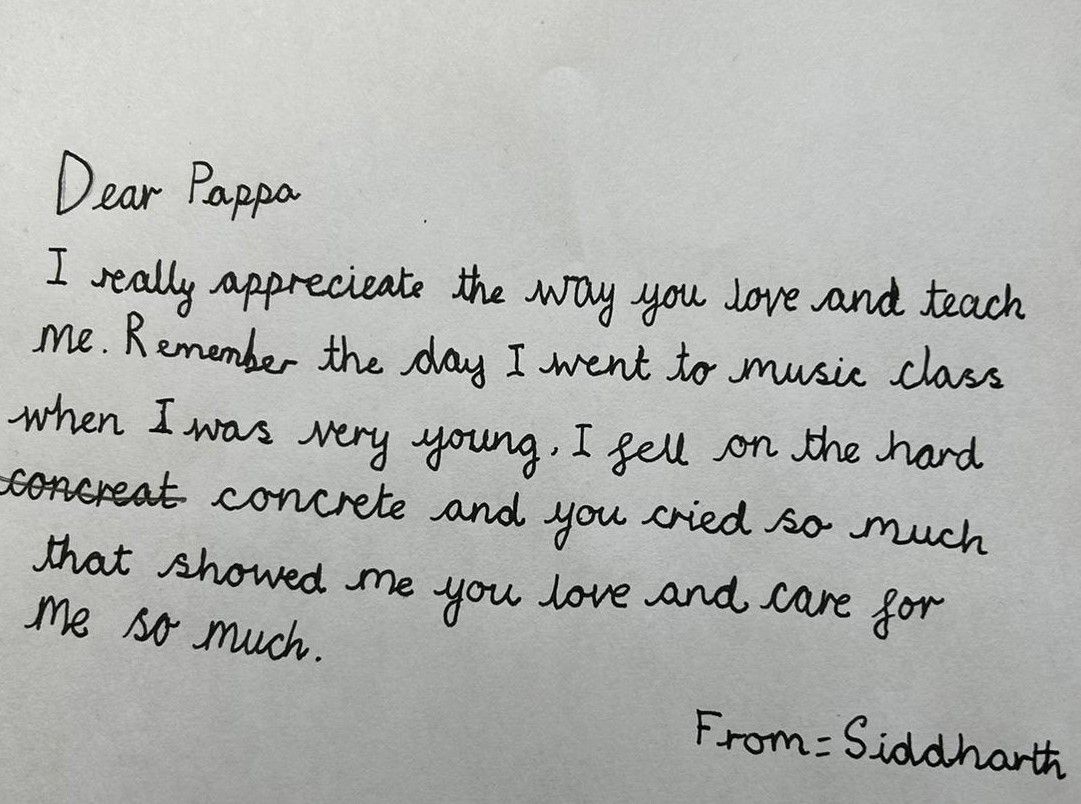 Dear Pappa
I really apprecieate the way you love and teach
me. Remember the day I went to music class
when I was very young, I fell on the hard
concreat concrete and you cried so much
that showed me you love and care for
me so much.
From = Siddharth